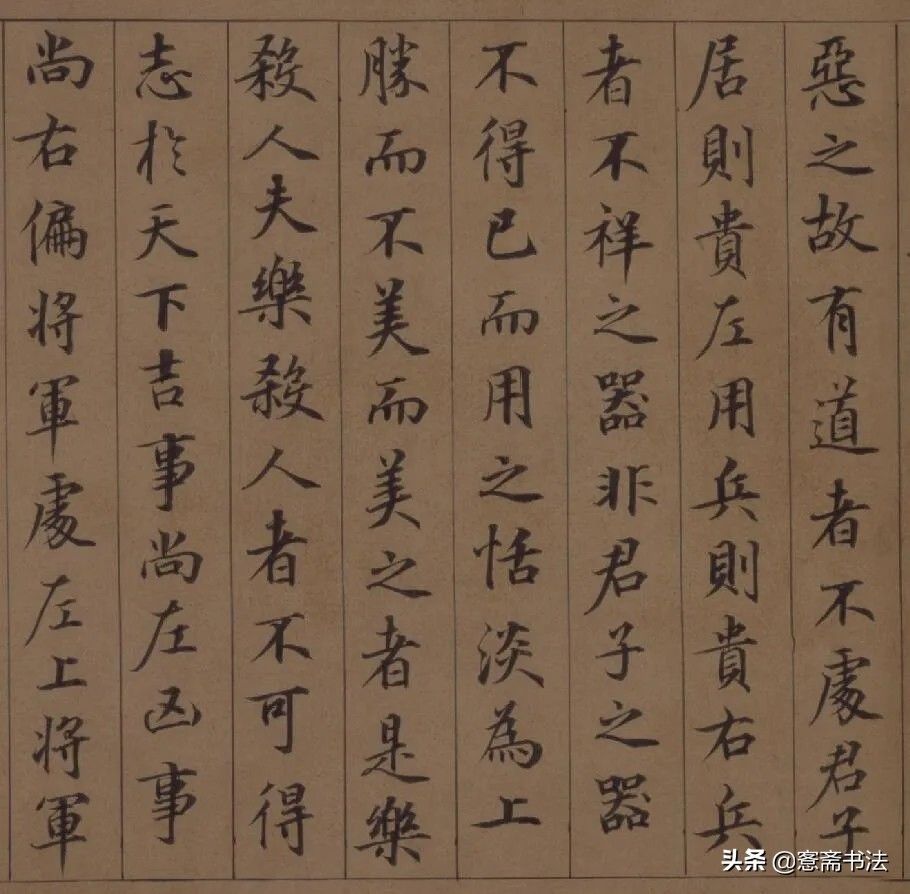 惡之故有道者不處君子
居則貴左用兵則貴右兵
者不祥之器非君子之器
不得已而用之恬淡為上
勝而不美而美之者是樂
殺人夫樂殺人者不可得
志於天下吉事尚左凶事
尚右偏將軍處左上將軍
头条 @窓斋书法